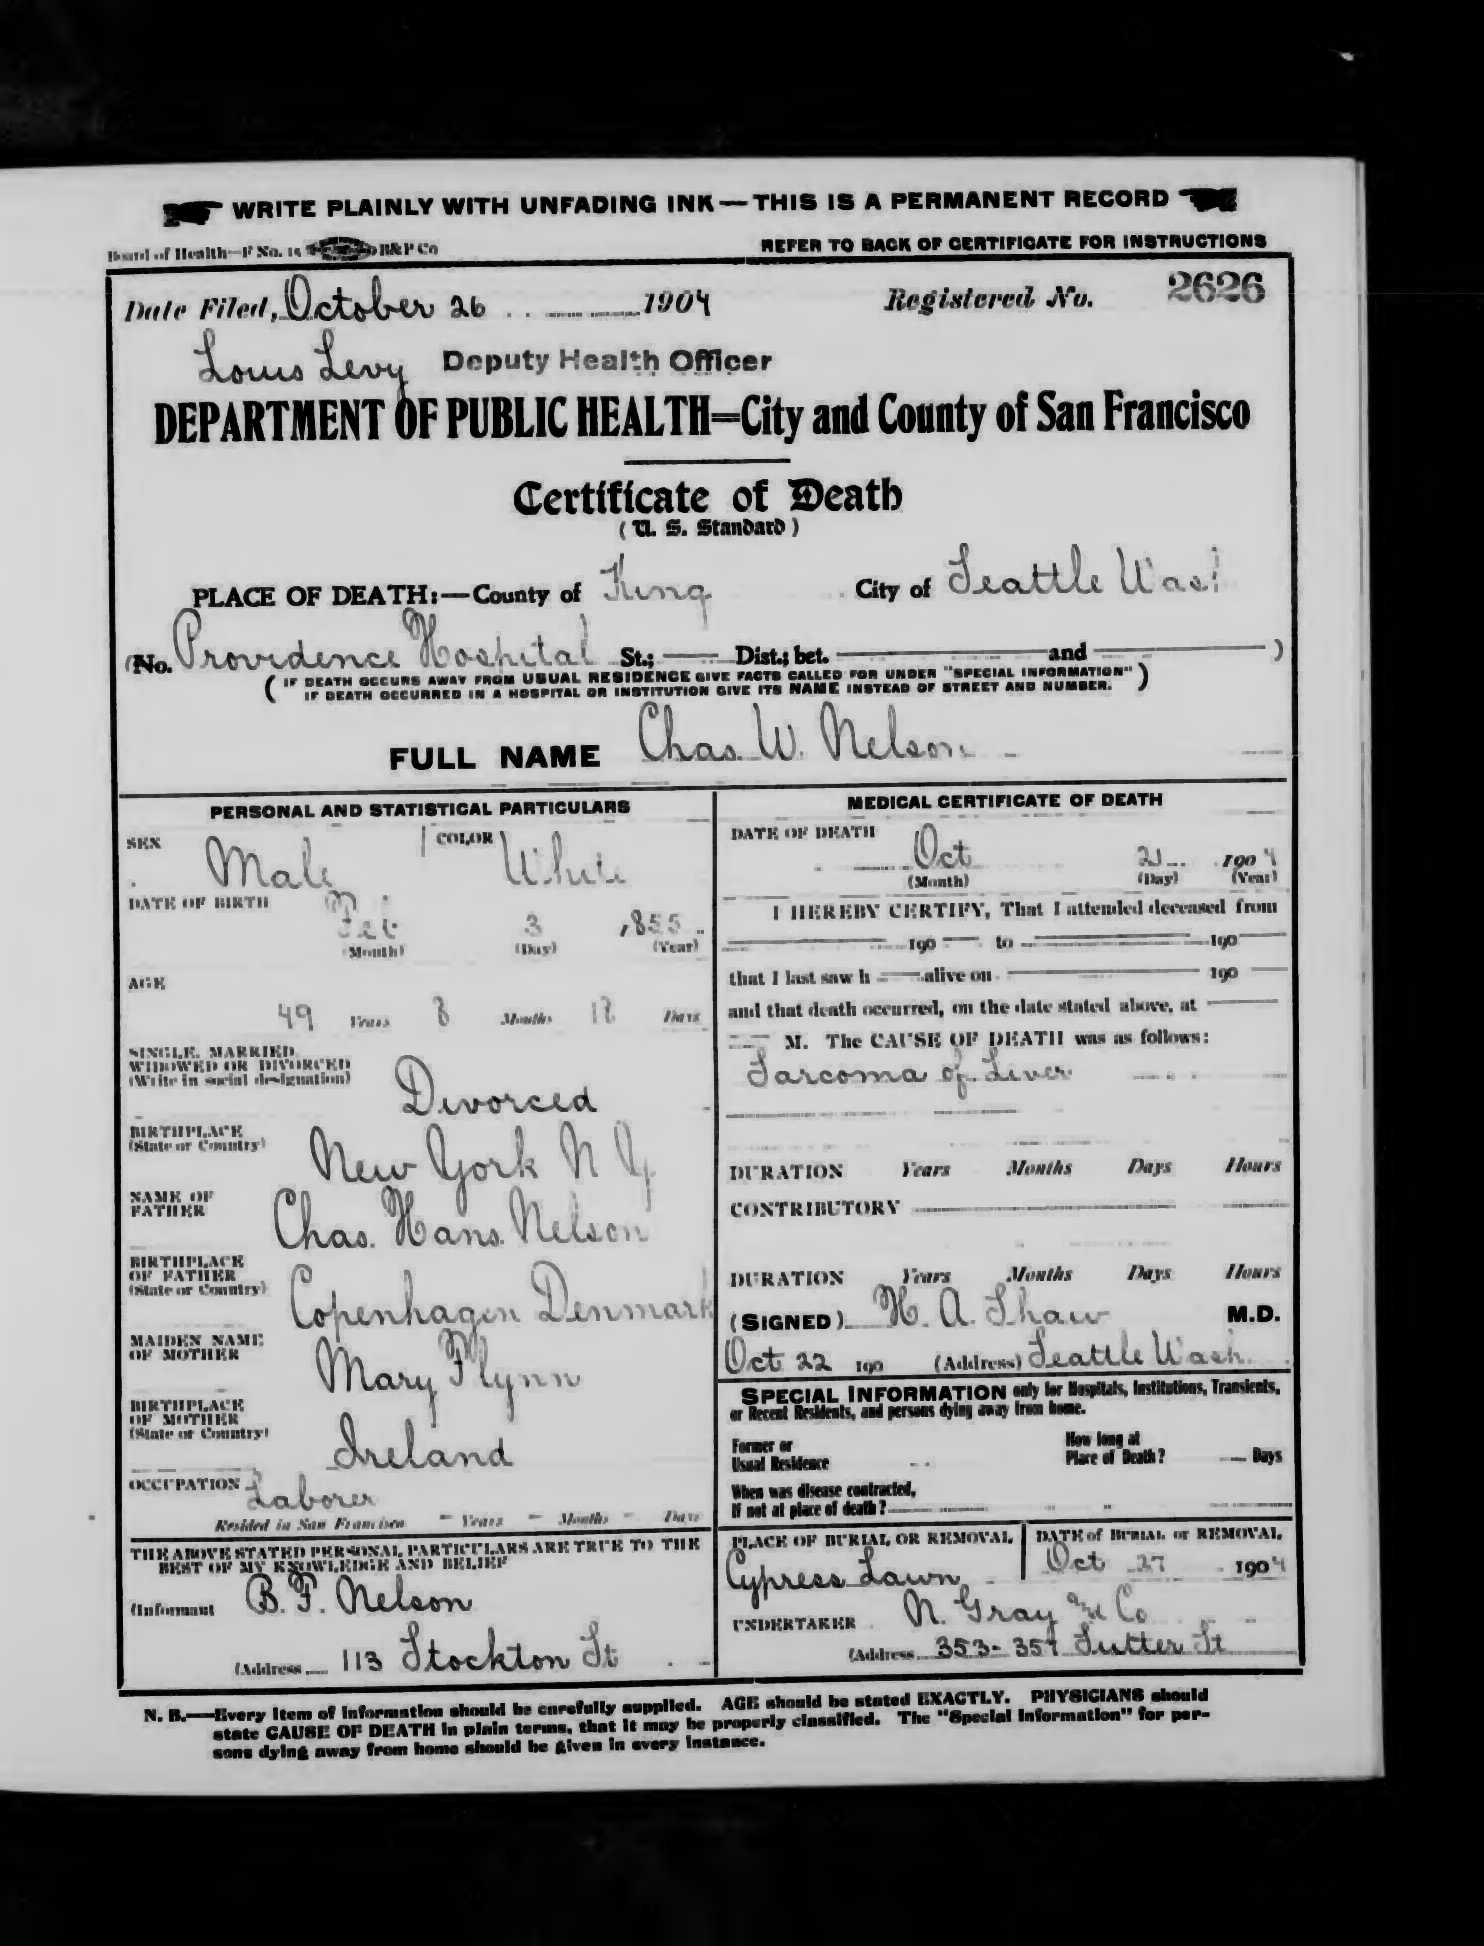 WRITE PLAINLY WITH UNFADING INK — THIS IS A PERMANENT RECORD
Board of Health—F No. 15 B&P Co
REFER TO BACK OF CERTIFICATE FOR INSTRUCTIONS
Date Filed, October 26 1904 Registered No. 2626
Louis Levy Deputy Health Officer
DEPARTMENT OF PUBLIC HEALTH=City and County of San Francisco
Certificate of Death
(U. S. Standard)
PLACE OF DEATH:—County of King City of Seattle Wash
(No. Providence Hospital St.; Dist.; bet. and )
( IF DEATH OCCURS AWAY FROM USUAL RESIDENCE GIVE FACTS CALLED FOR UNDER "SPECIAL INFORMATION" )
( IF DEATH OCCURRED IN A HOSPITAL OR INSTITUTION GIVE ITS NAME INSTEAD OF STREET AND NUMBER. )
FULL NAME Chas. W. Nelson
PERSONAL AND STATISTICAL PARTICULARS
SEX Male COLOR White
DATE OF BIRTH
Feb 3 1855
(Month) (Day) (Year)
AGE
49 Years 8 Months 18 Days
SINGLE, MARRIED,
WIDOWED OR DIVORCED
(Write in social designation)
Divorced
BIRTHPLACE
(State or Country)
New York N Y
NAME OF
FATHER
Chas. Hans. Nelson
BIRTHPLACE
OF FATHER
(State or Country)
Copenhagen Denmark
MAIDEN NAME
OF MOTHER
Mary Flynn
BIRTHPLACE
OF MOTHER
(State or Country)
Ireland
OCCUPATION Laborer
Resided in San Francisco Years Months Days
THE ABOVE STATED PERSONAL PARTICULARS ARE TRUE TO THE
BEST OF MY KNOWLEDGE AND BELIEF
(Informant B. F. Nelson
(Address 113 Stockton St
MEDICAL CERTIFICATE OF DEATH
DATE OF DEATH
Oct 21 1904
(Month) (Day) (Year)
I HEREBY CERTIFY, That I attended deceased from
190 to 190
that I last saw h alive on 190
and that death occurred, on the date stated above, at
M. The CAUSE OF DEATH was as follows:
Sarcoma of Liver
DURATION Years Months Days Hours
CONTRIBUTORY
DURATION Years Months Days Hours
(SIGNED) H. A. Shaw M.D.
Oct 22 190 (Address) Seattle Wash.
SPECIAL INFORMATION only for Hospitals, Institutions, Transients,
or Recent Residents, and persons dying away from home.
Former or
Usual Residence
How long at
Place of Death? Days
When was disease contracted,
If not at place of death?
PLACE OF BURIAL OR REMOVAL
Cypress Lawn
DATE of BURIAL or REMOVAL
Oct 27 1904
UNDERTAKER N. Gray and Co
(Address 353-357 Sutter St
N. B.—Every item of information should be carefully supplied. AGE should be stated EXACTLY. PHYSICIANS should
state CAUSE OF DEATH in plain terms, that it may be properly classified. The "Special Information" for per-
sons dying away from home should be given in every instance.